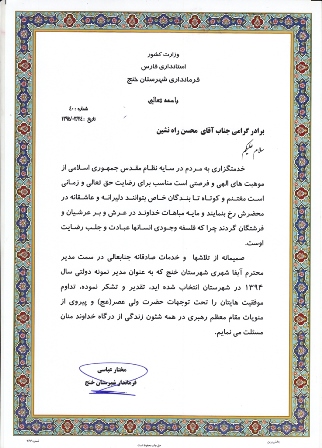 وزارت کشور
استانداری فارس
فرمانداری شهرستان خنج
باسمه تعالی
شماره :
تاریخ :
برادر گرامی جناب آقای محسن راه نشین
سلام علیکم
خدمتگزاری به مردم در سایه نظام مقدس جمهوری اسلامی از
موهبت های الهی و فرصتی است مناسب برای رضایت حق تعالی و زمانی
است مغتنم و کوتاه تا بندگان خاص بتوانند دلیرانه و عاشقانه در
محضرش رخ بنمایند و مایه مباهات خداوند در عرش و بر عرشیان و
فرشتگان گردند چرا که فلسفه وجودی انسانها عبادت و جلب رضایت
اوست.
صمیمانه از تلاشها و خدمات صادقانه جنابعالی در سمت مدیر
محترم آبفا شهری شهرستان خنج که به عنوان مدیر نمونه دولتی سال
۱۳۹۴ در شهرستان انتخاب شده اید، تقدیر و تشکر نموده، تداوم
موفقیت هایتان را تحت توجهات حضرت ولی عصر(عج) و پیروی از
منویات مقام معظم رهبری در همه شئون زندگی از درگاه خداوند منان
مسئلت می نمایم.
مختار عباسی
فرماندار شهرستان خنج